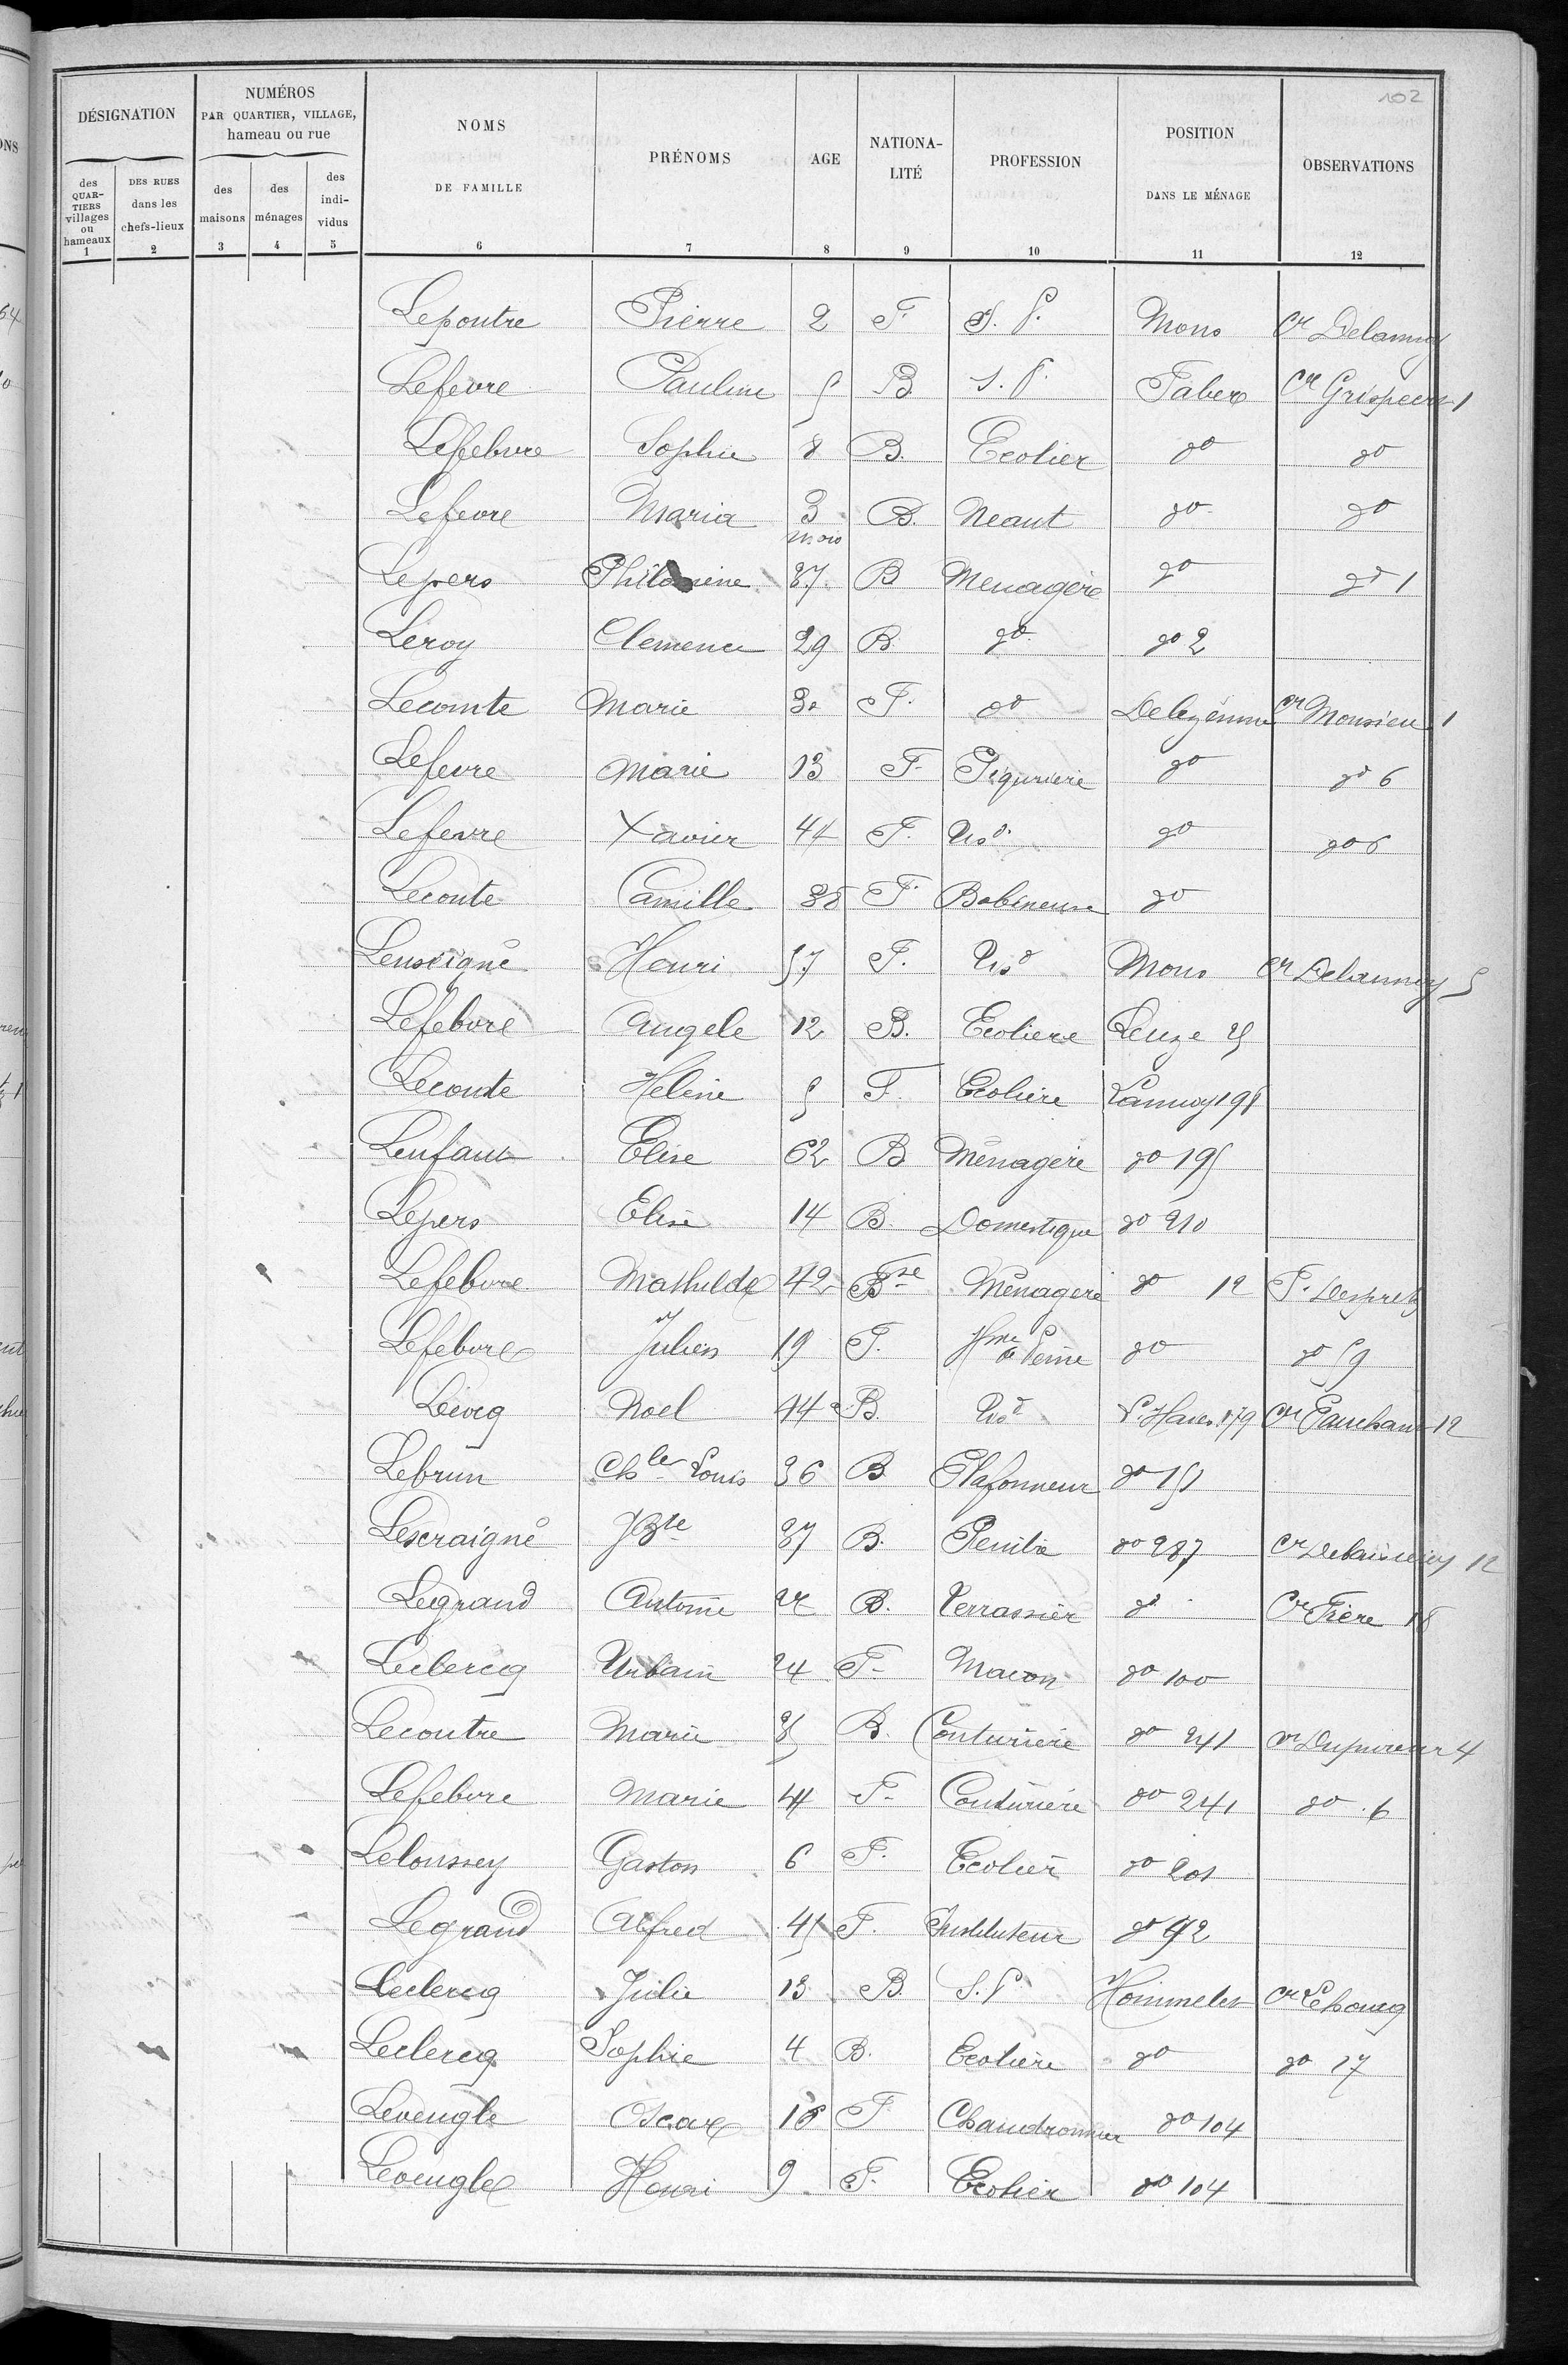 102
DÉSIGNATION
des QUARTIERS villages ou hameaux 1
DES RUES dans les chefs-lieux 2
NUMÉROS
PAR QUARTIER, VILLAGE,
hameau ou rue
des maisons 3
des ménages 4
des indi-vidus 5
NOMS DE FAMILLE 6
PRÉNOMS 7
AGE 8
NATIONA-LITÉ 9
PROFESSION 10
POSITION DANS LE MÉNAGE 11
OBSERVATIONS 12
Lepoutre Pierre 2 F S. P. Mons Cr Delannoy
Lefevre Pauline 5 B. S. P. Faber Cr Grispeert 1
Lefebvre Sophie 8 B. Ecolier do do
Lefevre Maria 3 mois B. Neant do do
Lepers Philomène 37 B Menagère do do 1
Leroy Clemence 29 B. do do 2
Lecomte Marie 30 F. do Delezenne cr Monsieu 1
Lefevre Marie 13 F. Piqurière do do 6
Lefevre Xavier 44 F. Tisd do do 6
Leconte Camille 38 F. Bobineuse do
Lenseigne Henri 57 F. Tisd Mons Cr Delannoy 5
Lefebvre Angele 12 B. Ecoliere Leuze 25
Leconte Helène 5 F. Ecolière Lannoy 198
Lenfant Elise 62 B Ménagère do 195
Lepers Elise 14 B Domestique do 210
Lefebvre Mathilde 42 Bse Ménagère do 12 F. Despretz
Lefebvre Julien 19 F. Hme de Peine do do 59
Noel 44 B. Tisd P. Haies 179 Cr 12
Lebrun Chles Louis 36 B Plafonneur do 151
Lescraigne JBte 37 B. do 287 Cr 12
Legrand Antoine 22 B. Terrassier do Cr Frère 18
Leclercq Urbain 24 F. Macon do 100
Lecoutre Marie 35 B. Couturière do 241 cr 4
Lefebvre Marie 44 F. Couturière do 241 do 6
Leloussey Gaston 6 F. Ecolier do 201
Legrand Alfred 45 F. Instituteur do 92
Leclercq Julie 13 B. S. P. Hommelet cr Lehoucq
Leclercq Sophie 4 B. Ecolière do do 17
Leveugle Oscar 18 F Chaudronnier do 104
Leveugle Henri 9 F. Ecolier do 104